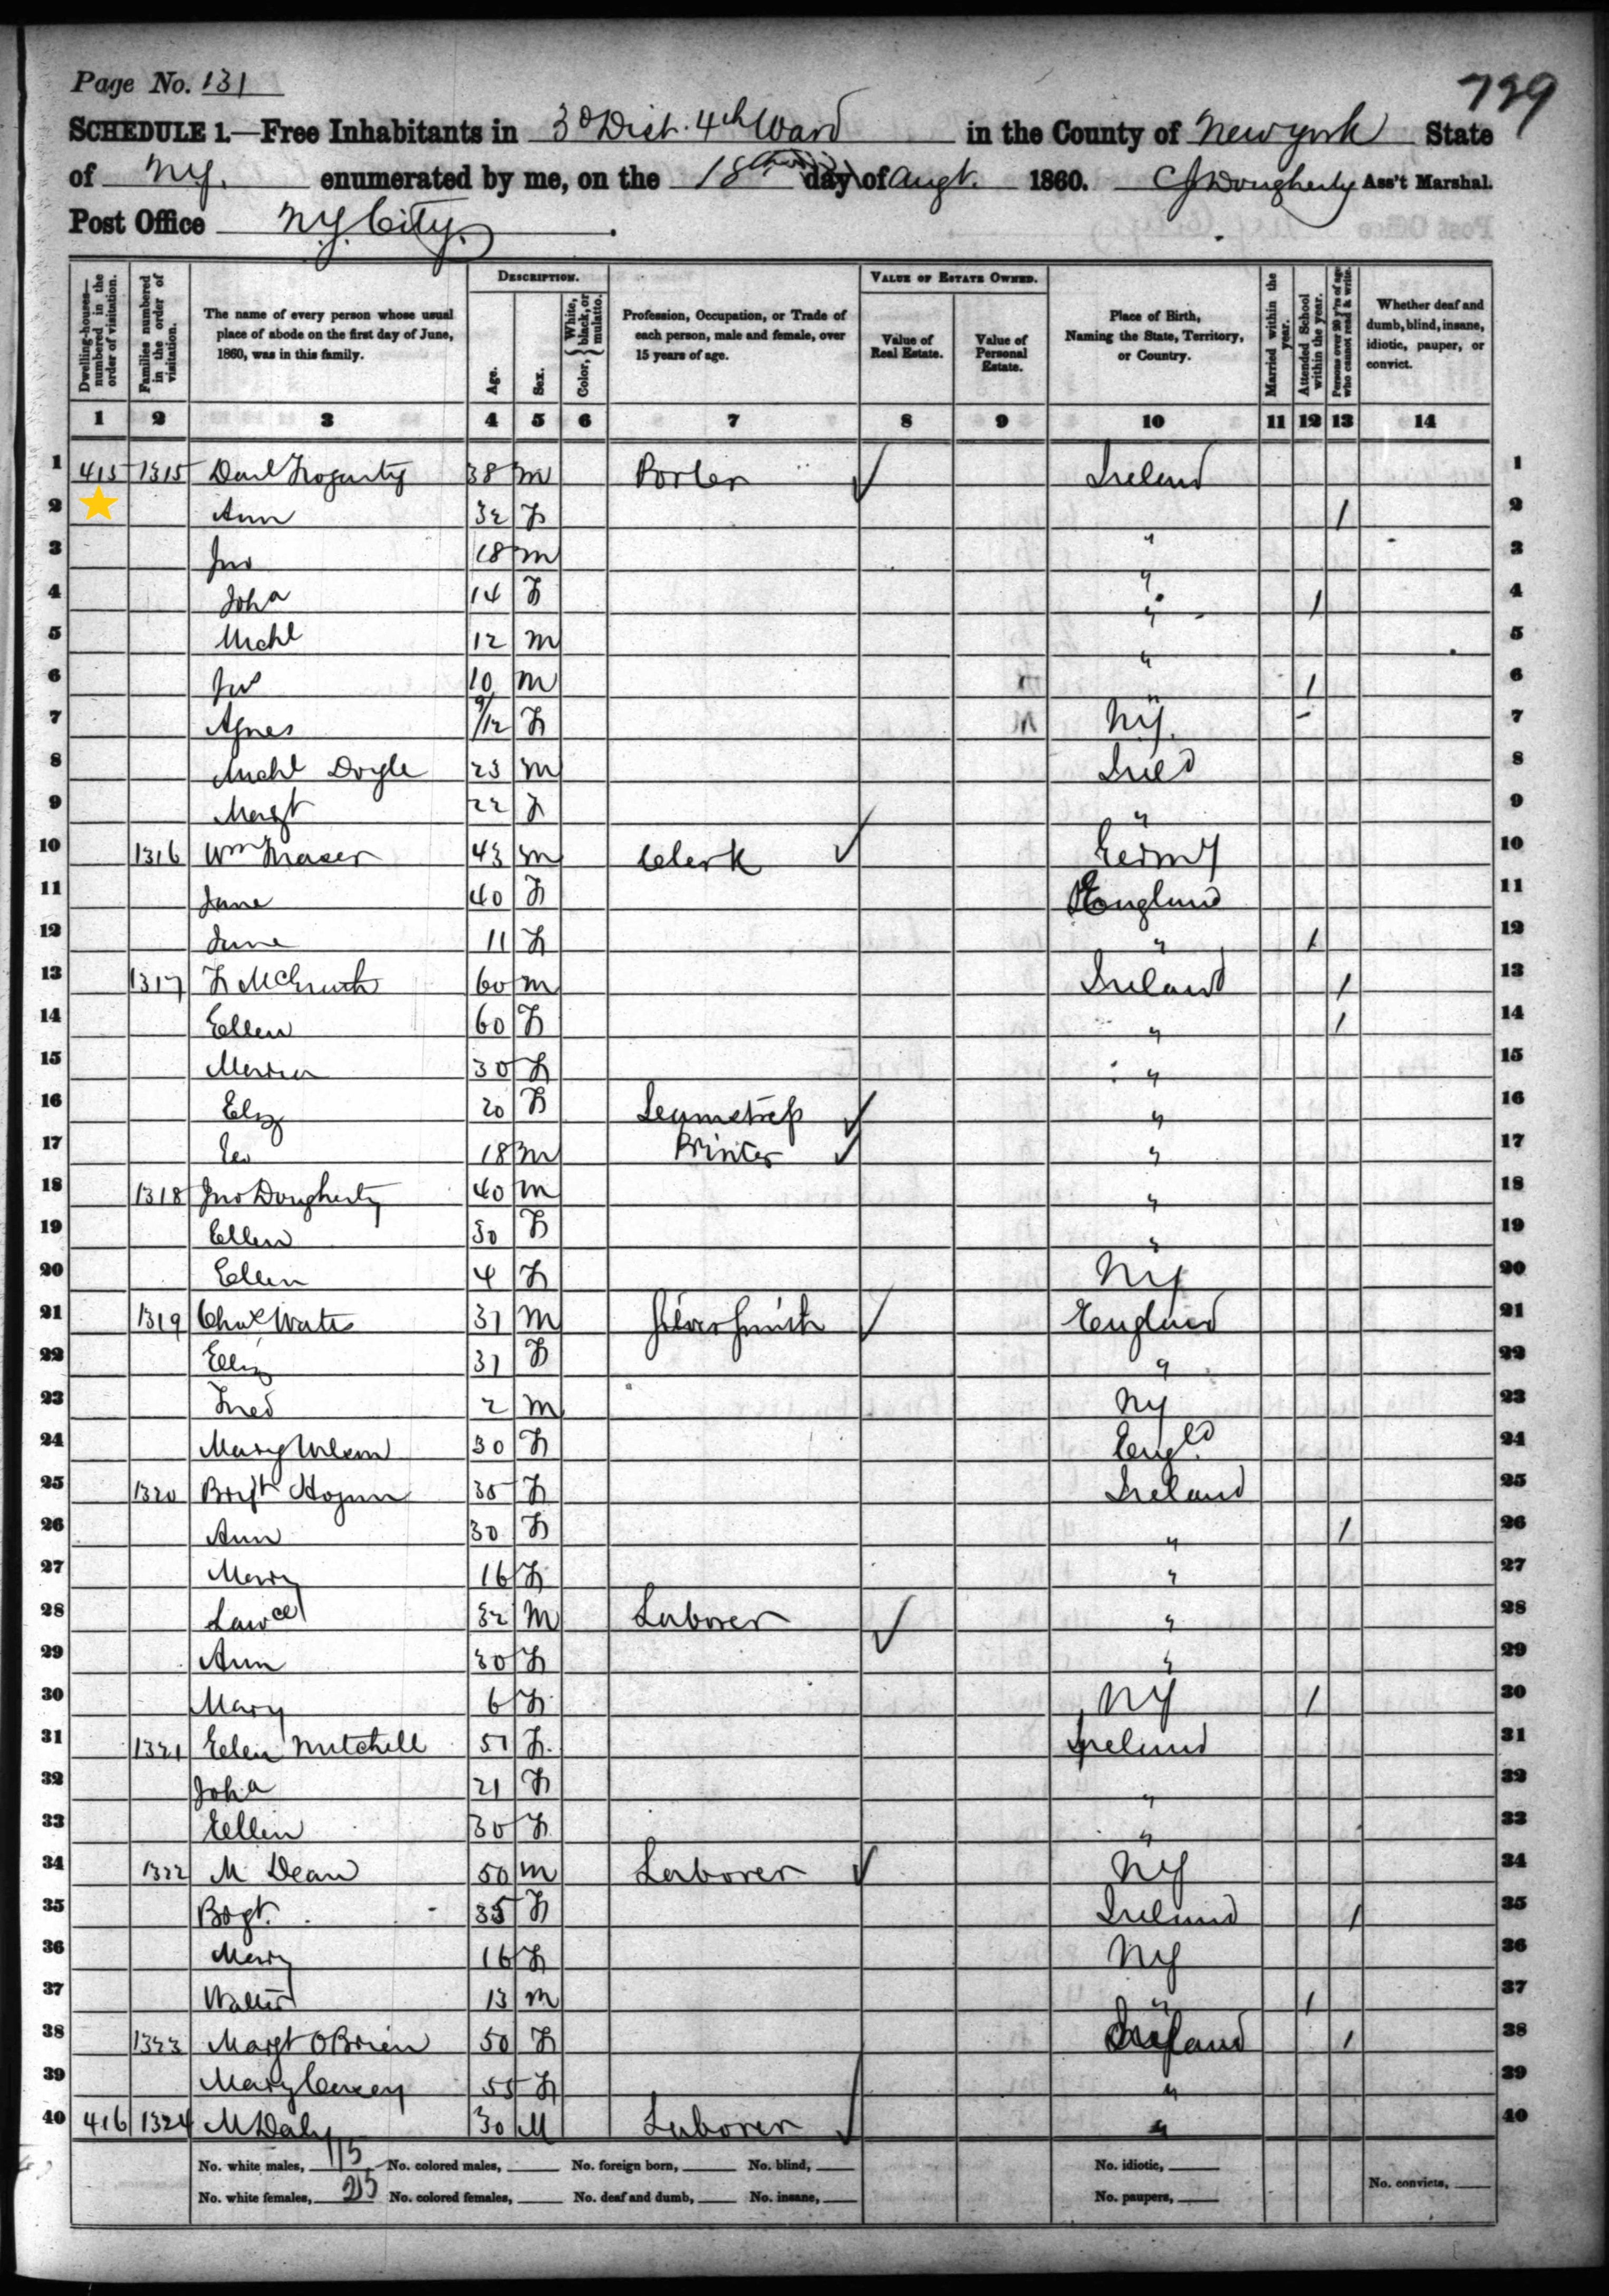 Page No. 131
729
SCHEDULE 1.—Free Inhabitants in 3d Dist. 4th Ward in the County of New York State
of N.Y. enumerated by me, on the 18th day of Augt. 1860. CJ Dougherty Ass't Marshal.
Post Office N.Y. City.
DESCRIPTION. VALUE OF ESTATE OWNED.
Dwelling-houses—numbered in the order of visitation. Families numbered in the order of visitation. The name of every person whose usual place of abode on the first day of June, 1860, was in this family. Age. Sex. Color, { White, black, or mulatto. Profession, Occupation, or Trade of each person, male and female, over 15 years of age. Value of Real Estate. Value of Personal Estate. Place of Birth, Naming the State, Territory, or Country. Married within the year. Attended School within the year. Persons over 20 y'rs of age who cannot read & write. Whether deaf and dumb, blind, insane, idiotic, pauper, or convict.
1 2 3 4 5 6 7 8 9 10 11 12 13 14
1 415 1315 Danl Fogarty 38 m Porter Ireland 1
2 Ann 32 F " / 2
3 Jno 18 m " 3
4 Joha 14 F " / 4
5 Michl 12 m " 5
6 Jas 10 m " / 6
7 Agnes 9/12 F NY. 7
8 Michl Doyle 23 m Ireld 8
9 Margt 22 F " 9
10 1316 Wm Fraser 43 m Clerk Germy 10
11 Jane 40 F England 11
12 Jane 11 F " / 12
13 1317 F McGrath 60 m Ireland / 13
14 Ellen 60 F " / 14
15 Maria 30 F " 15
16 Eliz 20 F Seamstress " 16
17 Geo 18 m Printer " 17
18 1318 Jno Dougherty 40 m " 18
19 Ellen 30 F " 19
20 Ellen 4 F NY 20
21 1319 Chas Waters 31 m Silver Smith England 21
22 Eliz 31 F " 22
23 Fred 2 m NY 23
24 Mary Wilson 30 F Engld 24
25 1320 Brigt Hogan 35 F Ireland 25
26 Ann 30 F " / 26
27 Mary 16 F " 27
28 Lawce 32 M Laborer " 28
29 Ann 30 F " 29
30 Mary 6 F NY / 30
31 1321 Ellen Mitchell 51 F. Ireland 31
32 Joha 21 F " 32
33 Ellen 30 F " 33
34 1322 M Dean 50 m Laborer NY 34
35 Bogt. 35 F Ireland / 35
36 Mary 16 F NY 36
37 Walter 13 m " / 37
38 1323 Margt OBrien 50 F Ireland / 38
39 Mary 55 F " 39
40 416 1324 M Daly 30 M Laborer " 40
No. white males, 15 No. colored males, No. foreign born, No. blind, No. idiotic,
No. white females, 25 No. colored females, No. deaf and dumb, No. insane, No. paupers, No. convicts,